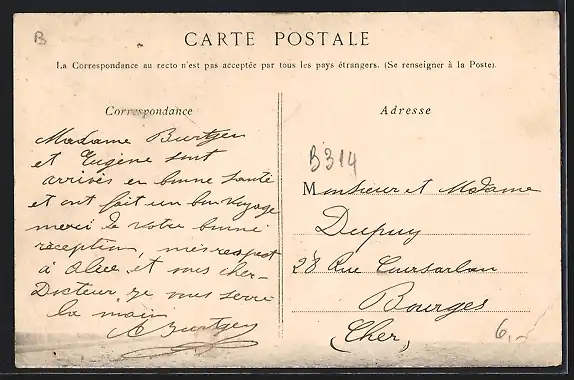 B
CARTE POSTALE
La Correspondance au recto n'est pas acceptée par tous les pays étrangers. (Se renseigner à la Poste).
Correspondance
Madame Burtgen
et Eugène sont
arrivés en bonne santé
et ont fait un bon voyage
merci de votre bonne
réception, mes respect
à Alice et mes cher
Docteur, je vous serre
la main
A Burtgen
Adresse
B314
Monsieur et Madame
Dupuy
28 Rue
Bourges
(Cher)
6,-